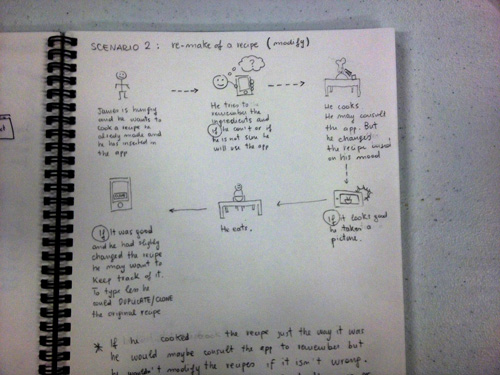 SCENARIO 2 : re-make of a recipe (modify)
?
James is hungry
and he wants to
cook a recipe he
already made and
he has inserted in
the app
He tries to
remember the
ingredients and
if he can't or if
he is not sure he
will use the app
He cooks
He may consult
the app. But
he changes
the recipe based
on his mood
If It was good
and he had slighly
changed the recipe
he may want to
keep track of it.
To type less he
could DUPLICATE/CLONE
the original recipe
He eats.
If It looks good
he takes a
picture.
* If he cooked the recipe just the way it was
he would maybe consult the app to remember but
he wouldn't modify the recipes if it isn't wrong.